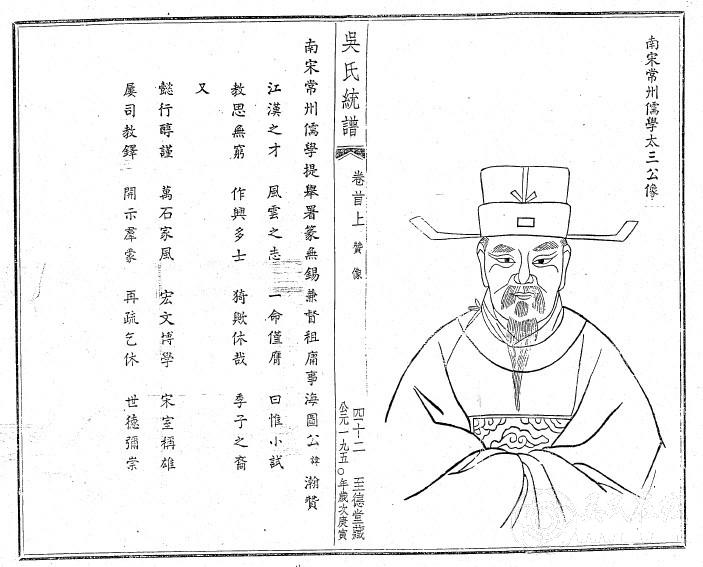 南宋常州儒學太三公像
吳氏統譜
卷首上 贊像
四十二 至德堂藏
公元一九五〇年歲次庚寅
南宋常州儒學提舉署篆無錫兼督租庸事海圖公諱瀚贊
江漢之才 風雲之志 一命僅膺 曰惟小試
教思無窮 作興多士 猗歟休哉 季子之裔
又
懿行醇謹 萬石家風 宏文博學 宋室稱雄
屢司教鐸 開示羣蒙 再疏乞休 世德彌崇